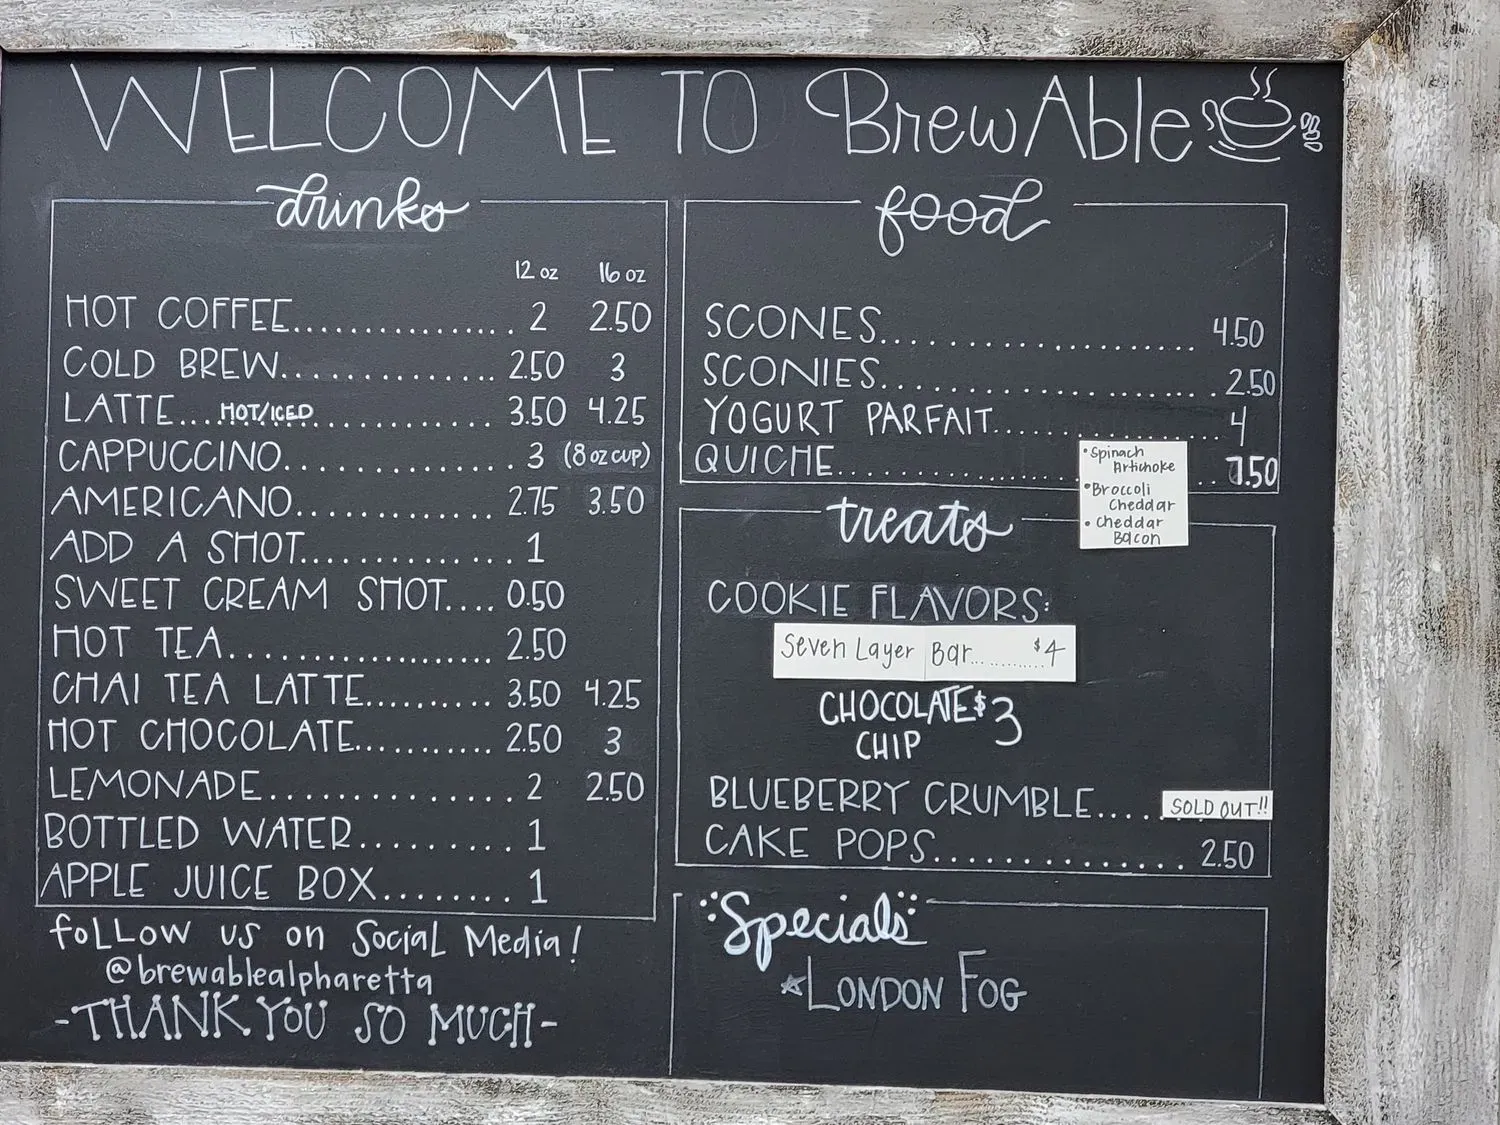 WELCOME TO BrewAble
drinks
12 oz 16 oz
HOT COFFEE............... 2 2.50
COLD BREW.............. 2.50 3
LATTE....HOT/ICED 3.50 4.25
CAPPUCCINO............... 3 (8 oz CUP)
AMERICANO............. 2.75 3.50
ADD A SHOT............ 1
SWEET CREAM SHOT.... 0.50
HOT TEA................. 2.50
CHAI TEA LATTE.......... 3.50 4.25
HOT CHOCOLATE........... 2.50 3
LEMONADE.............. 2 2.50
BOTTLED WATER.......... 1
APPLE JUICE BOX........ 1
follow us on Social Media!
@brewablealpharetta
-THANK YOU SO MUCH-
food
SCONES...................... 4.50
SCONIES...................... 2.50
YOGURT PARFAIT................ 4
QUICHE...................... .50
• Spinach
Artichoke
• Broccoli
Cheddar
• Cheddar
Bacon
treats
COOKIE FLAVORS:
Seven Layer Bar........... $4
CHOCOLATE $3
CHIP
BLUEBERRY CRUMBLE..... SOLD OUT!!
CAKE POPS............... 2.50
Specials
☆LONDON FOG